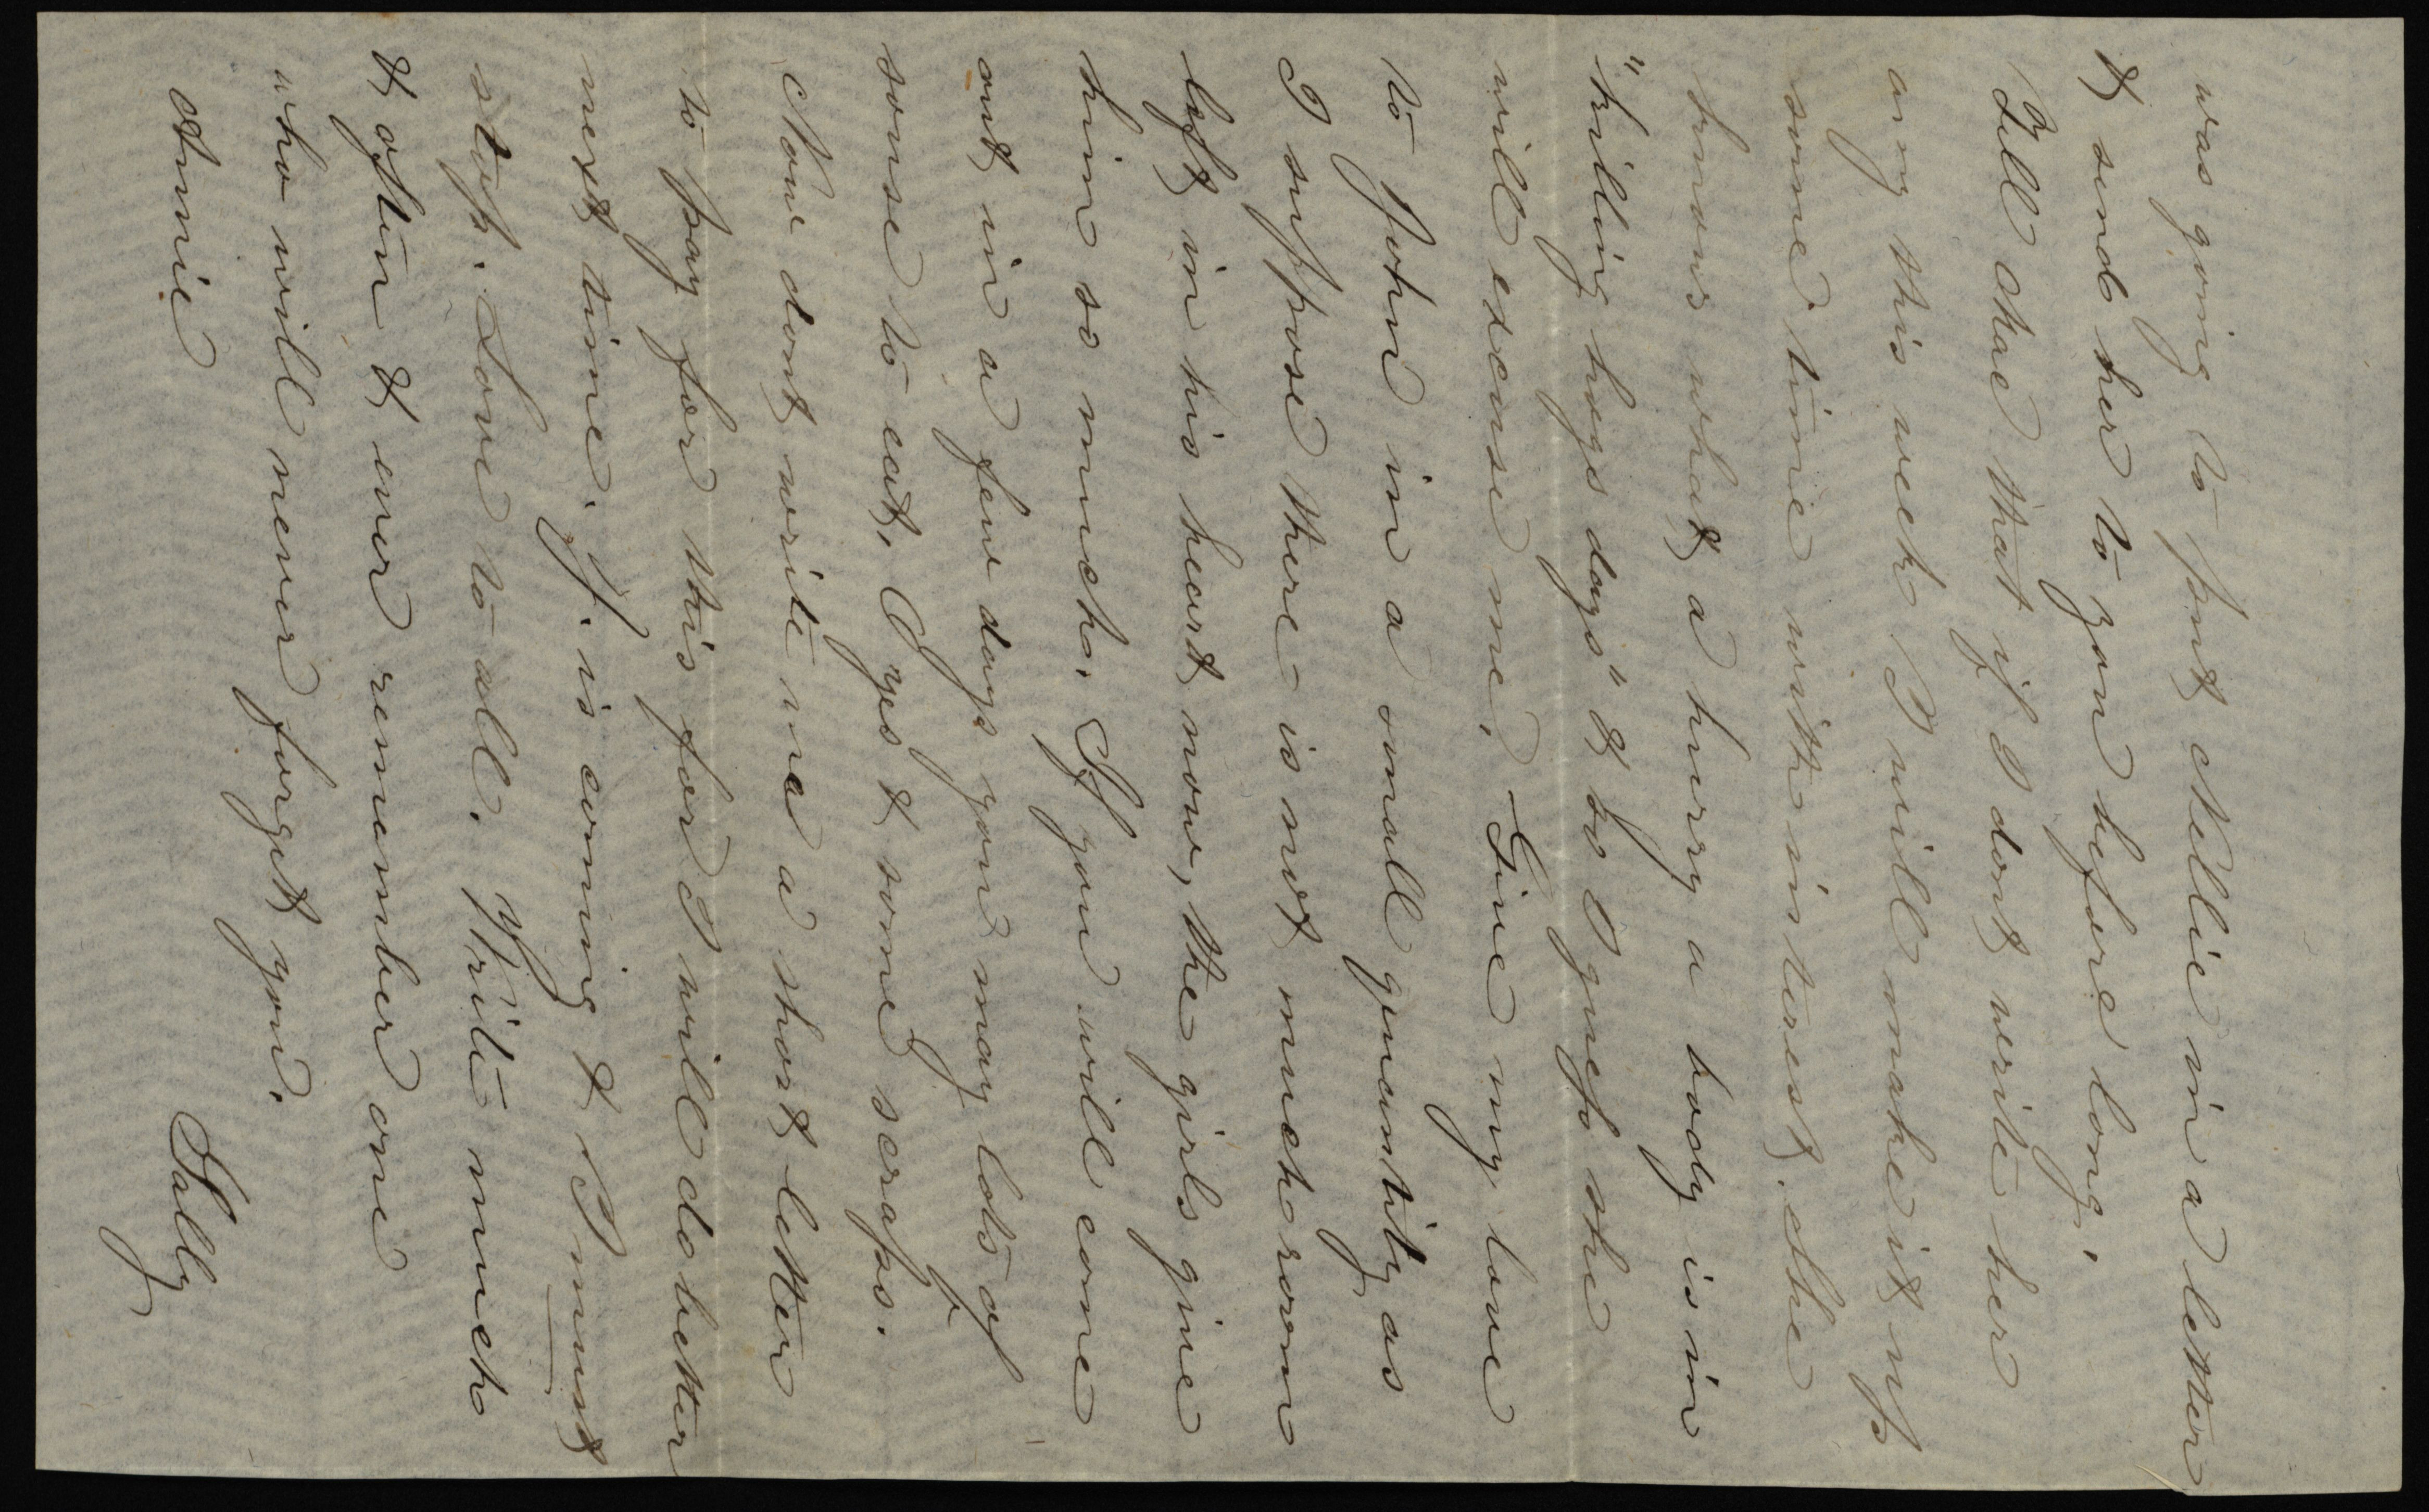 was going to put Nellie in a letter
& send her to you before long.
Tell Mae that if I dont write her
any this week I will make it up
some time with interest. She
knows what a hurry a body is in
"killing hogs days" & so I guess she
will excuse me. Give my love
to John in a small quantity as
I suppose there is not much room
left in his heart now, the girls give
him so much. If you will come
out in a few days you may lots of
souse to eat, O yes & some scraps.
Now dont write me a short letter
to pay for this for I will do better
next time. J. is coming & I must
stop. Love to all. Write much
& often & ever remember one
who will never forget you.
Annie
Sally